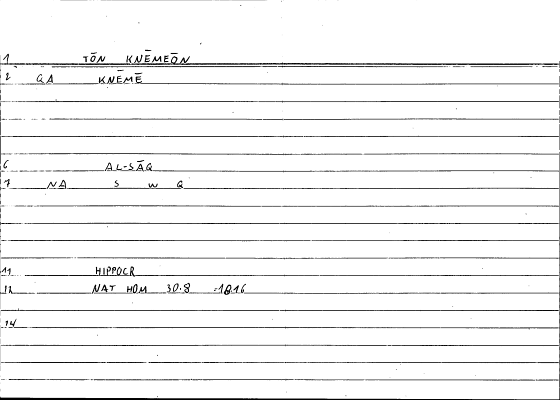 1 TŌN KNĒMEŌN
2 GA KNĒMĒ
6 AL-SĀQ
7 NA S W Q
11 HIPPOCR
12 NAT HOM 30.8
14